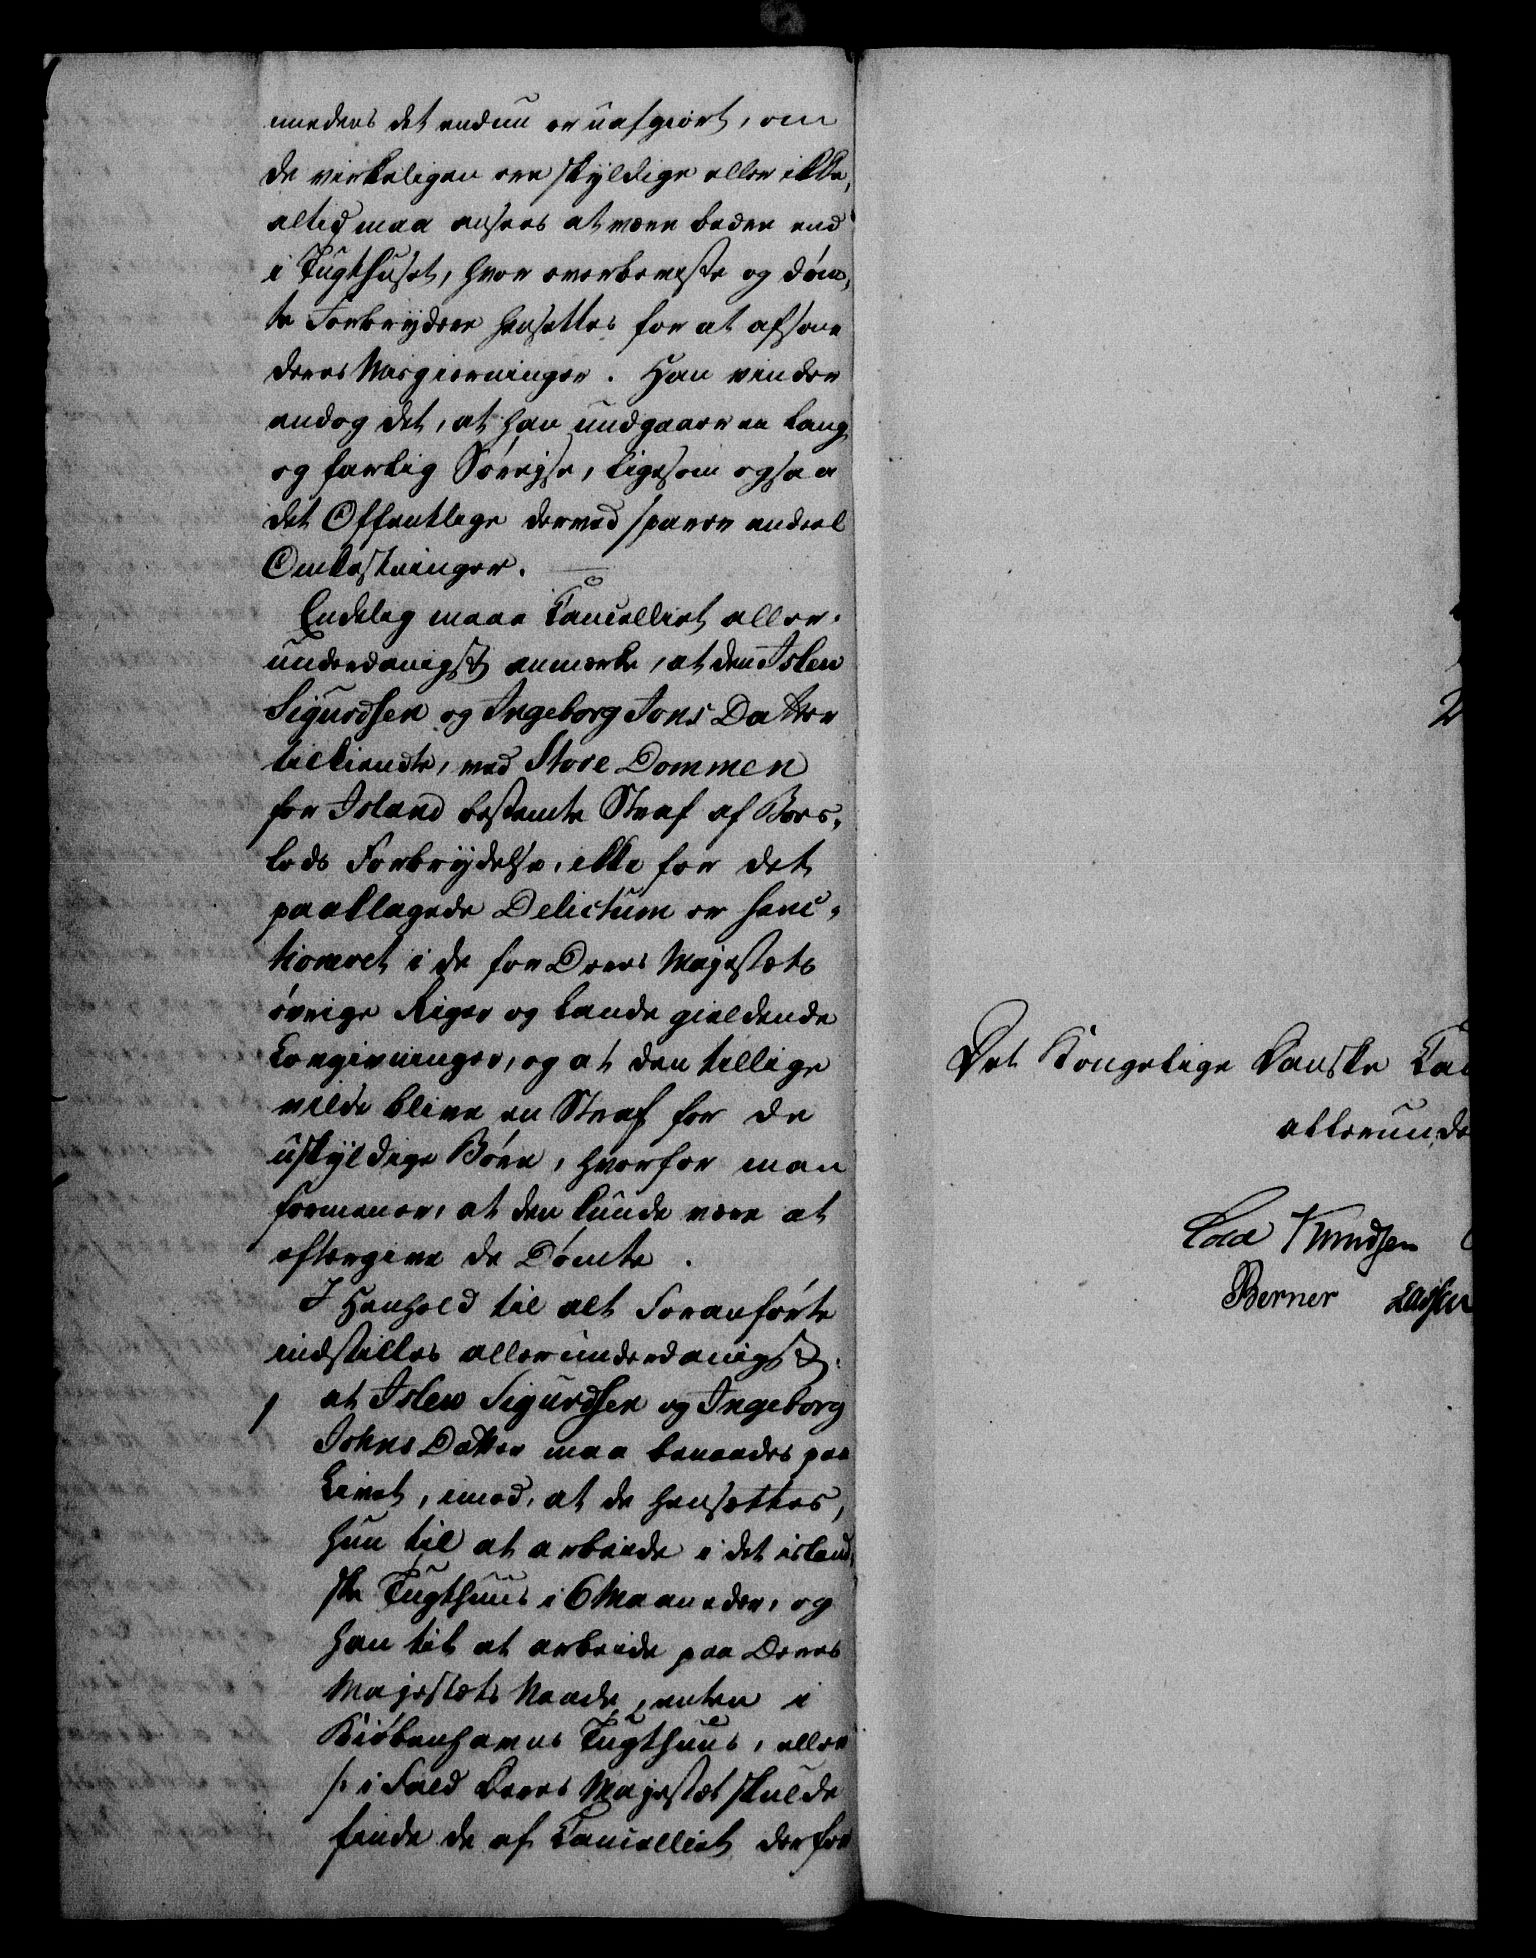 meders det endnu er uafgiort, om
de virkeligen ere skyldige eller ikke,
altid maa ansees at være bedre end
i Tugthuset, hvor overbeviste og døm-
te Forbrydere hensættes for at afsone
deres Misgierninger. Han vinder
endog det, at han undgaaer en lang
og farlig Søreyse, ligesom ogsaa
det Offentlige derved sparer endeel
Omkostninger.
Endelig maae Cancelliet aller-
underdanigst anmærke, at den Islev
Sigurdsen og Ingeborg Jons Datter
tilkiendte, ved Store Dommen
for Island bestemte Straf af Boes-
lods Forbrydelse, ikke for det
paaklagede Delictum er sanc-
tioneret i de for Deres Majestæts
øvrige Riger og Lande gieldende
Lovgivninger, og at den tillige
vilde blive en Straf for de
uskyldige Børn, hvorfor man
formener, at den kunde være at
eftergive de Dømte.
I Henhold til alt Foranførte
indstilles allerunderdanigst:
1 at Islev Sigurdsen og Ingeborg
Johns Datter maa benaades paa
Livet, imod, at de hensættes,
hun til at arbeide i det island-
ske Tugthuus i 6 Maaneder, og
han til at arbeide paa Deres
Majestæts Naade, enten i
Kiøbenhavns Tugthuus, eller
/: i Fald Deres Majestæt skulde
finde de af Cancelliet derfor
2
Det Kongelige Danske Can
allerunde
Cold Knudsen
Berner Lassen